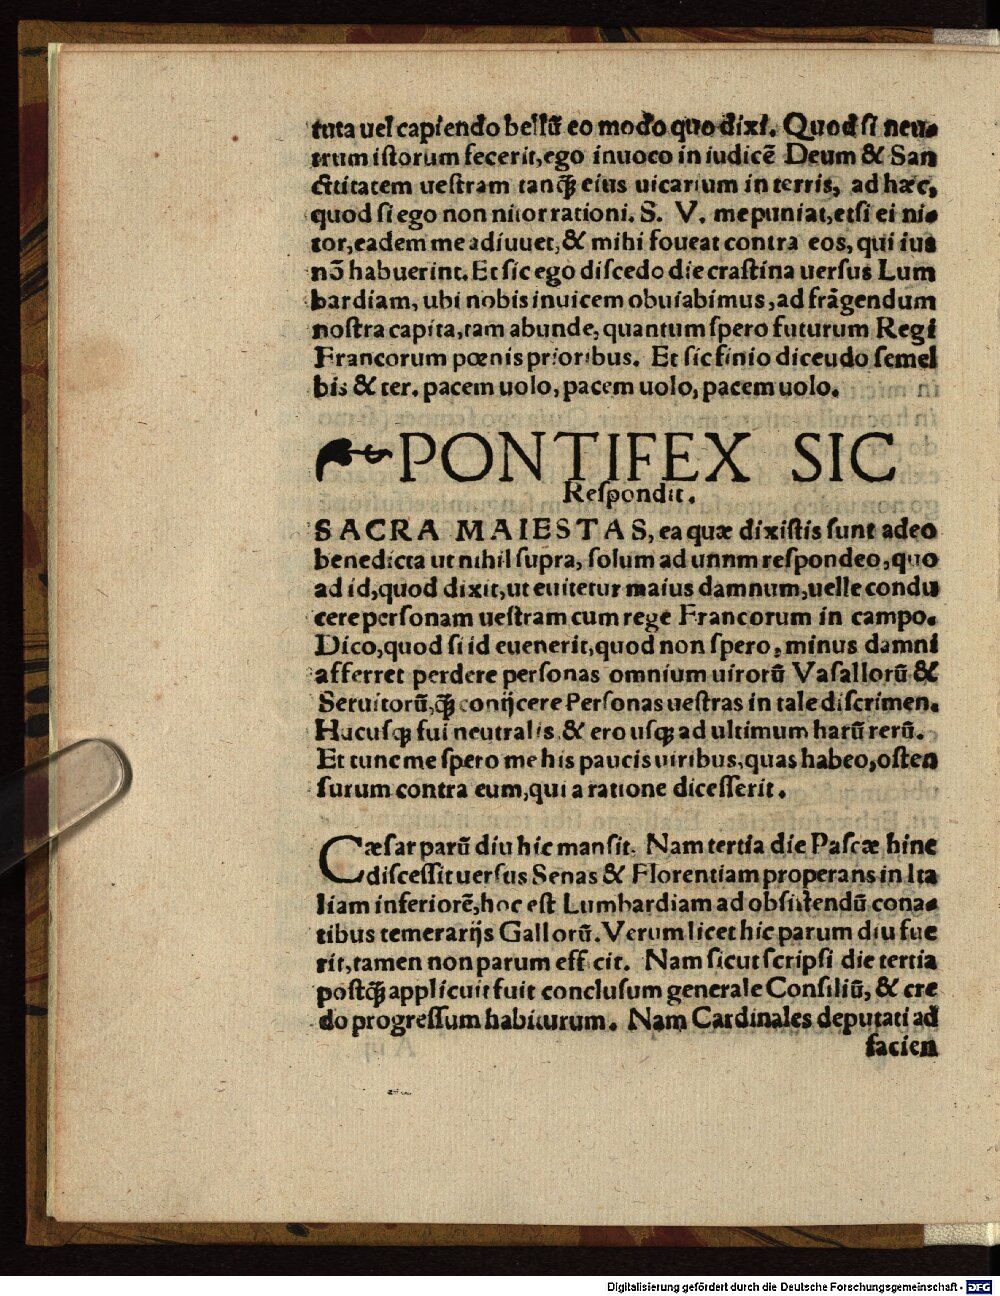 tuta uel capiendo bellũ eo modo quo dixi. Quod si neu-
trum istorum fecerit, ego inuoco in iudicẽ Deum & San
ctitatem uestram tanq̃ʒ eius uicarium in terris, ad hæc,
quod si ego non nitor rationi. S. V. me puniat, etsi ei ni-
tor, eadem me adiuuet, & mihi foueat contra eos, qui ius
nõ habuerint. Et sic ego discedo die crastina uersus Lum
bardiam, ubi nobis inuicem obuiabimus, ad frãgendum
nostra capita, tam abunde, quantum spero futurum Regi
Francorum pœnis prioribus. Et sic finio diceudo semel
bis & ter. pacem uolo, pacem uolo, pacem uolo.
☙PONTIFEX SIC
Respondit.
SACRA MAIESTAS, ea quæ dixistis sunt adeo
benedicta ut nihil supra, solum ad unnm respondeo, quo
ad id, quod dixit, ut euitetur maius damnum, uelle condu
cere personam uestram cum rege Francorum in campo.
Dico, quod si id euenerit, quod non spero, minus damni
afferret perdere personas omnium uirorũ Vasallorũ &
Seruitorũ, q̃ʒ conijcere Personas uestras in tale discrimen.
Hucusqʒ fui neutralis, & ero usqʒ ad ultimum harũ rerũ.
Et tunc me spero me his paucis uiribus, quas habeo, osten
surum contra eum, qui a ratione dicesserit.
Cæsar parũ diu hic mansit. Nam tertia die Pascæ hinc
discessit uersus Senas & Florentiam properans in Ita
liam inferiorẽ, hoc est Lumbardiam ad obsistendũ cona-
tibus temerarijs Gallorũ. Verum licet hic parum diu fue
rit, tamen non parum effecit. Nam sicut scripsi die tertia
postq̃ʒ applicuit fuit conclusum generale Consiliũ, & cre
do progressum habiturum. Nam Cardinales deputati ad
facien
Digitalisierung gefördert durch die Deutsche Forschungsgemeinschaft - DFG